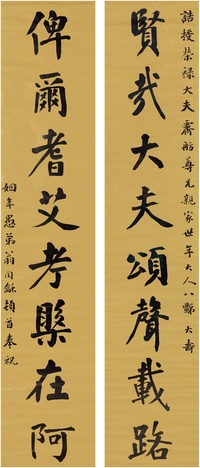 誥授榮祿大夫霽舫尊兄親家世年大人八豑大壽
賢哉大夫頌聲載路
俾爾耆艾考槃在阿
姻年愚弟翁同龢頓首奉祝